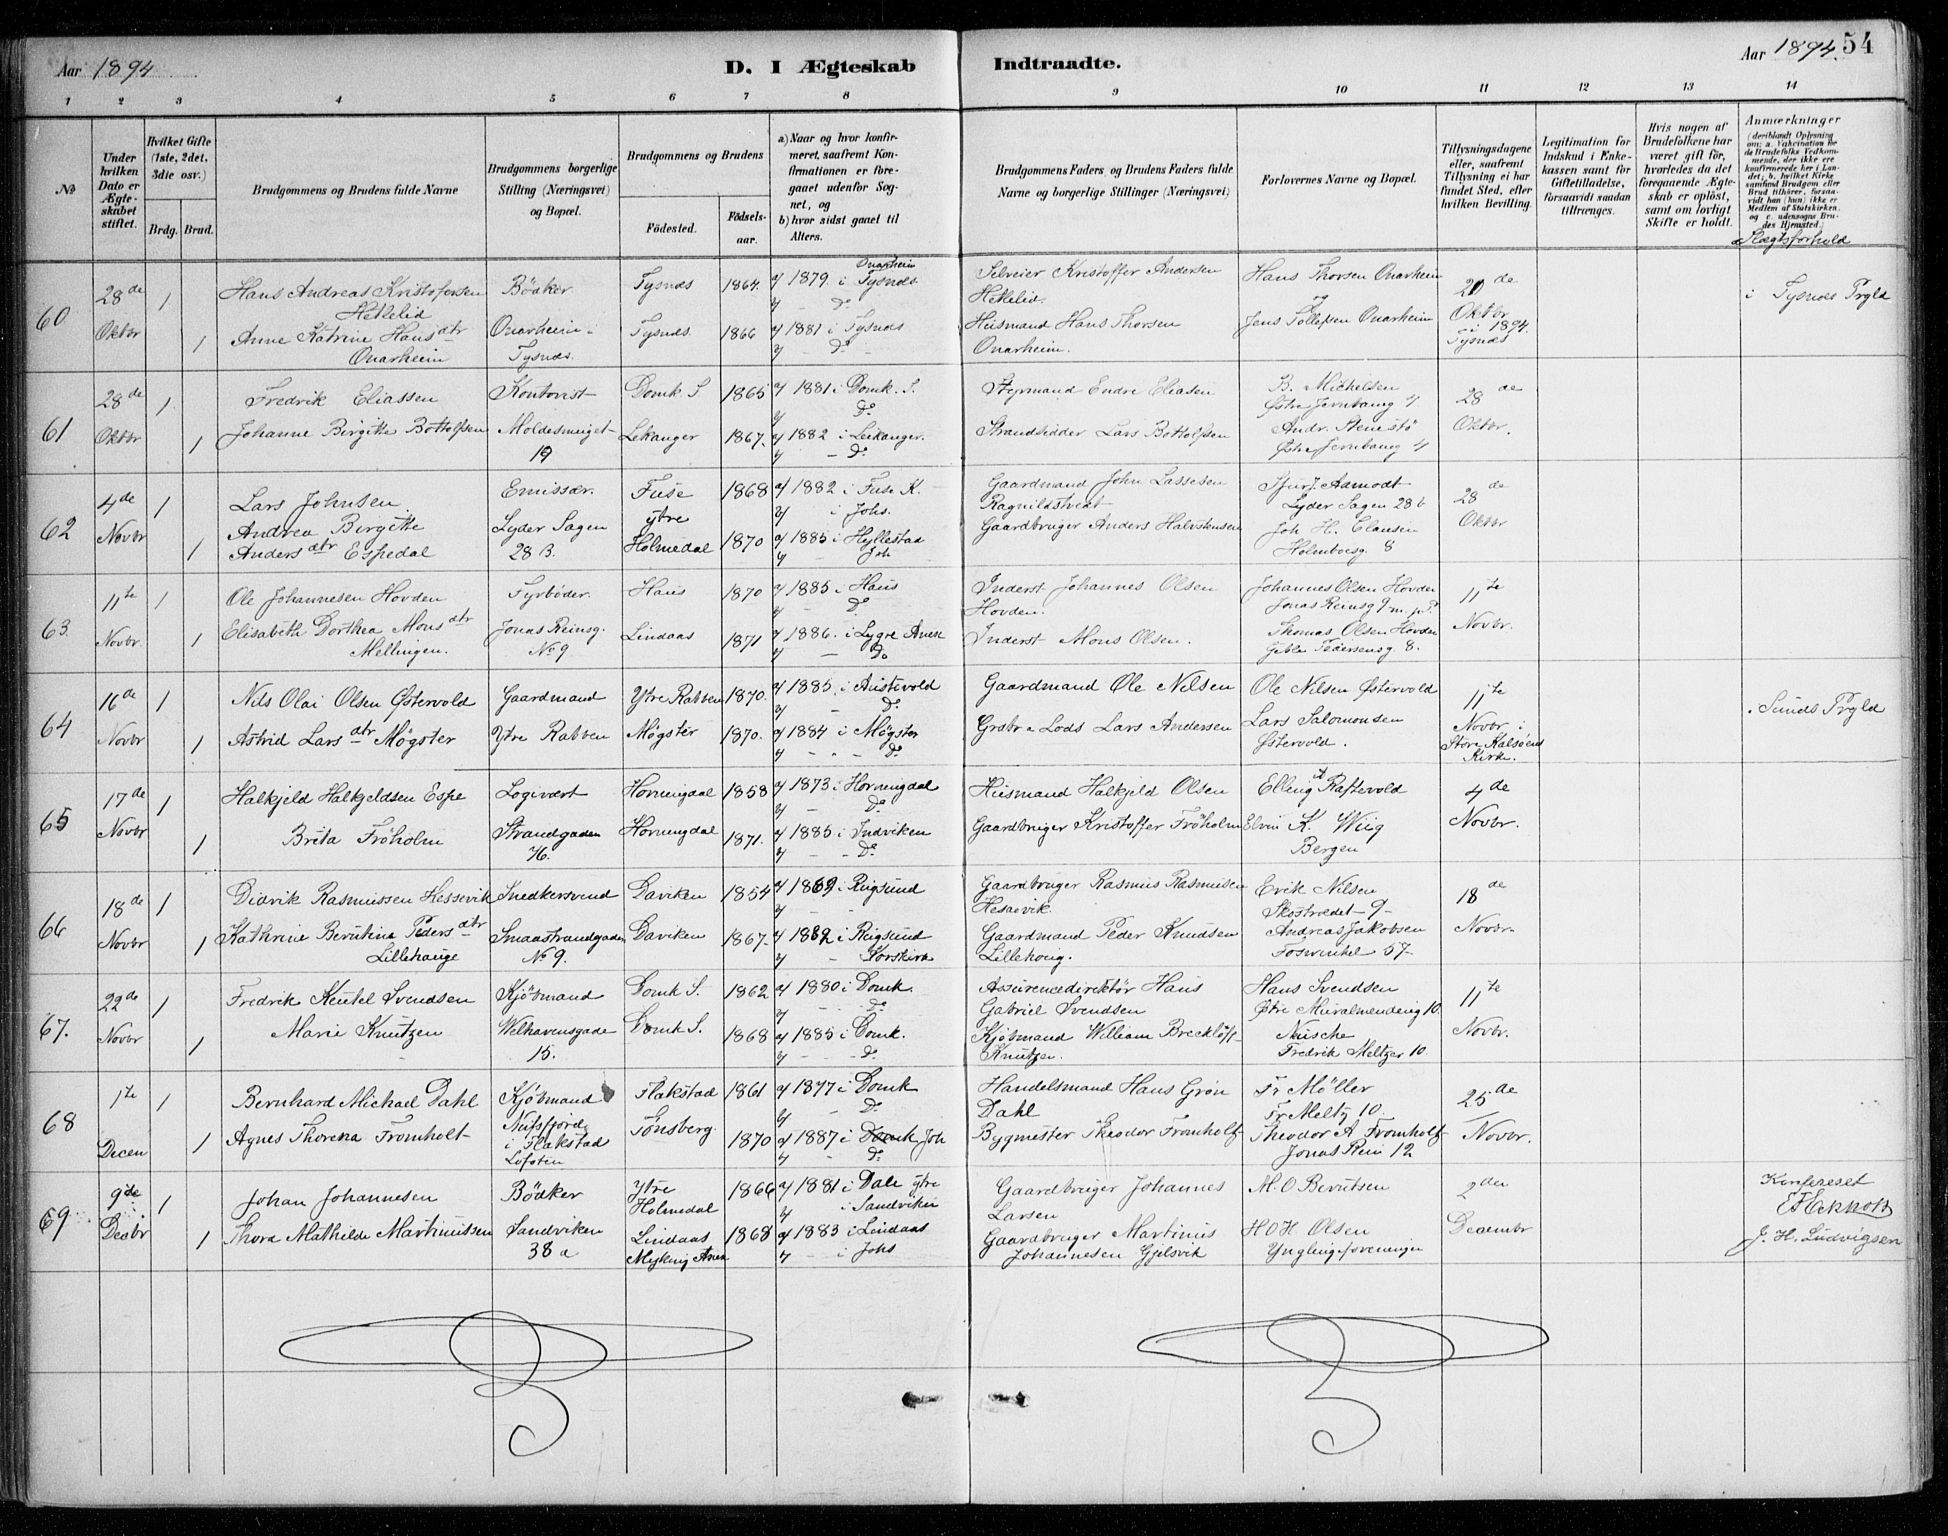 Aar 1894
D. I Ægteskab Indtraadte.
Aar 1894. 54
1 2 3 4 5 6 7 8 9 10 11 12 13 14
No
Under hvilken Dato er Ægteskabet stiftet.
Hvilket Gifte (1ste, 2det, 3die osv.)
Brdg. Brud.
Brudgommens og Brudens fulde Navne
Brudgommens borgerlige Stilling (Næringsvei) og Bopæl.
Brudgommens og Brudens
Födested.
Födselsaar.
a) Naar og hvor konfirmeret, saafremt Konfirmationen er foregaaet udenfor Sognet, og
b) hvor sidst gaaet til Alters.
Brudgommens Faders og Brudens Faders fulde Navne og borgerlige Stillinger (Næringsvei)
Forlovernes Navne og Bopæl.
Tillysningsdagene eller, saafremt Tillysning ei har fundet Sted, efter hvilken Bevilling.
Legitimation for Indskud i Enkekassen samt for Giftetilladelse, forsaavidt saadan tiltrænges.
Hvis nogen af Brudefolkene har været gift för, hvorledes da det foregaaende Ægteskab er oplöst, samt om lovligt Skifte er holdt.
Anmærkninger
(deriblandt Oplysning om: a. Vakcination for de Brudefolks Vedkommende, der ikke ere konfirmerede her i Landet, b. hvilket Kirkesamfund Brudgom eller Brud tilhörer, forsaavidt han (hun) ikke er Medlem af Statskirken, og c. udensogns Brudes Hjemsted.)
Slægtsforhold
60
28de Oktbr
1
1
Hans Andreas Kristofersen Hetlelid
Anne Katrine Hansdtr Onarheim
Bödker
Onarheim i Tysnæs.
Tysnæs 1864.
Tysnæs 1866
1879 i Onarheim Tysnæs. Do
1881 i Tysnæs Do
Selveier Kristoffer Andersen Hetlelid.
Husmand Hans Thorsen Onarheim.
Hans Thorsen Onarheim
og
Jens Tollefsen Onarheim
Oktbr i 1894 Tysnæs
i Tysnæs Prgld
61
28de Oktbr
1
1
Fredrik Eliassen
Johanne Birgitte Bottolfsen
Kontorist
Moldesmuget 19
Domk S 1865
Lekanger 1867.
1881 i Domk. S. Do
1882 i Leikanger. Do
Styrmand Endre Eliasen
Strandsidder Lars Bottolfsen
B. Michelsen
Østre Jernbaneg 4
Andr. Stenestö
Østre Jernbaneg 4
28de Oktbr.
62
4de Novbr
1
1
Lars Johnsen
Andrea Birgitte Andersdtr Espedal
Emissær.
Lyder Sagen 28 B.
Fuse 1868
Ytre Holmedal 1870
1882 i Fuse K. i Johs.
1885 i Hyllestad Joh
Gaardmand John Lassesen Ragnildstvedt
Gaardbruger Anders Halvshusen
Sjur J. Aamodt
Lyder Sagen 28 b
Joh. H. Clausen
Holmboesg. 8
28de Oktbr
63.
11te Novbr.
1
1
Ole Johannesen Hovden
Elisabeth Dorthea Monsdtr Mellingen.
Fyrböder.
Jonas Reinsg. No 9
Haus 1870
Lindaas 1871
1885 i Haus Do
1886. i Lygre Anex Do
Inderst Johannes Olsen Hovden.
Inderst Mons Olsen.
Johannes Olsen Hovden
Jonas Reinsg 9
Thomas Olsen Hovden
Geble Pedersensg 8.
11te Novbr.
64
16de Novbr
1
1
Nils Olai Olsen Østervold
Astrid Larsdtr Møgster
Gaardmand
Ytre Rabben
Ytre Rabben 1870.
Møgster 1870.
1885. i Austevold Do
1884 i Møgster Do
Gaardmand Ole Nilsen
Grdbr & Lods Lars Andersen
Ole Nilsen Østervold
Lars Salomonsen Østervold.
11te Novbr i Store Kalsöens Kirke.
Sunds Prgld
65
17de Novbr
1
1
Halkjeld Halkjeldsen Espe
Brita Fröholm
Logivært
Strandgaden 76.
Hornengdal 1858
Hornengdal 1871.
1873 i Hornengdal Do
1885 i Indviken Do
Husmand Halkjeld Olsen
Gaardbruger Kristoffer Fröholm
Elling A Raftevold
Elvin K. Wiig
Bergen
4de Novbr.
66
18de Novbr
1
1
Didrik Rasmussen Hessevik
Kathrine Berntine Pedersdtr Lillehauge
Snedkersvend
Smaastrandgaden No 9.
Daviken 1854
Daviken 1867.
1869 i Rugsund
1882 i Rugsund Korskirk
Gaardbruger Rasmus Rasmusen Hesaevik.
Gaardmand Peder Knudsen Lillehoug.
Erik Nilsen
Skostrædet 9
Andreas Jakobsen
Fosvinkel 57
18de Novbr.
67.
22de Novbr
1
1
Fredrik Keutel Svendsen
Marie Knutzen
Kjöbmand
Welhavensgade 15.
Domk S. 1862
Domk S. 1868
1880 i Domk. Do
1885 i Domk. Do
Assurencedirektör Hans Gabriel Svendsen
Kjöbmand William Knutzen.
Hans Svendsen
Østre Muralmending 10.
Nitsche
Fredrik Meltzer 10.
11te Novbr.
68
1te Decen
1
1
Bernhard Michael Dahl
Agnes Thorena Fromholt
Kjöbmand
Nufsfjord i Flakstad Lofoten
Flakstad 1861
Tönsberg. 1870
1877 i Domk Do
1887 i Domk Joh Do
Handelsmand Hans Grön Dahl
Bygmester Theodor Fromholt
Fr Møller
Fr Meltz 10.
Theodor A Fromholt
Jonas Rein 12
25de Novbr.
69
9de Decbr
1
1
Johan Johannesen
Thora Mathilde Martinussen
Bödker
Sandviken 38 a
Ytre Holmedal 1866
Lindaas Myking Anex 1868
1881 i Dale ytre i Sandviken
1883 i Lindaas i Johs
Gaardbruger Johannes Larsen
Gaardbruger Martinus Johannesen Gjelsvik
M. O Berntsen
H O H. Olsen
Ynglingeforeningen
2den Decembr
Konfereret
J. H. Ludvigsen